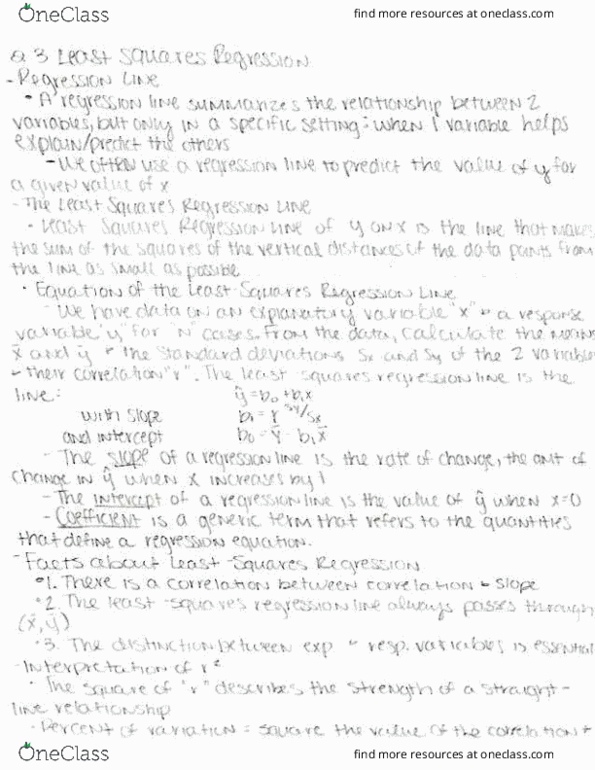 OneClass
find more resources at oneclass.com
2.3 Least Squares Regression
- Regression Line
• A regression line summarizes the relationship between 2
variables, but only in a specific setting: when 1 variable helps
explain/predict the others
- We often use a regression line to predict the value of y for
a given value of x
- The Least Squares Regression Line
• Least Squares Regression Line of y on x is the line that makes
the sum of the squares of the vertical distances of the data points from
the line as small as possible
• Equation of the Least-Squares Regression Line
- We have data on an explanatory variable "x" + a response
variable "y" for "N" cases. From the data, calculate the means
x̄ and ȳ + the standard deviations Sx and Sy of the 2 variables
+ their correlation "r". The least-squares regression line is the
line: ŷ = b₀ + b₁x
with slope b₁ = r Sy/Sx
and intercept b₀ = ȳ - b₁x̄
- The slope of a regression line is the rate of change, the amt of
change in ŷ when x increases by 1
- The intercept of a regression line is the value of ŷ when x=0
- Coefficient is a generic term that refers to the quantities
that define a regression equation.
- Facts about Least-Squares Regression
• 1. There is a correlation between correlation + slope
• 2. The least-squares regression line always passes through
(x̄, ȳ)
• 3. The distinction between exp + resp. variables is essential
- Interpretation of r²
• The square of "r" describes the strength of a straight-
line relationship
• Percent of variation = square the value of the correlation +
OneClass
find more resources at oneclass.com